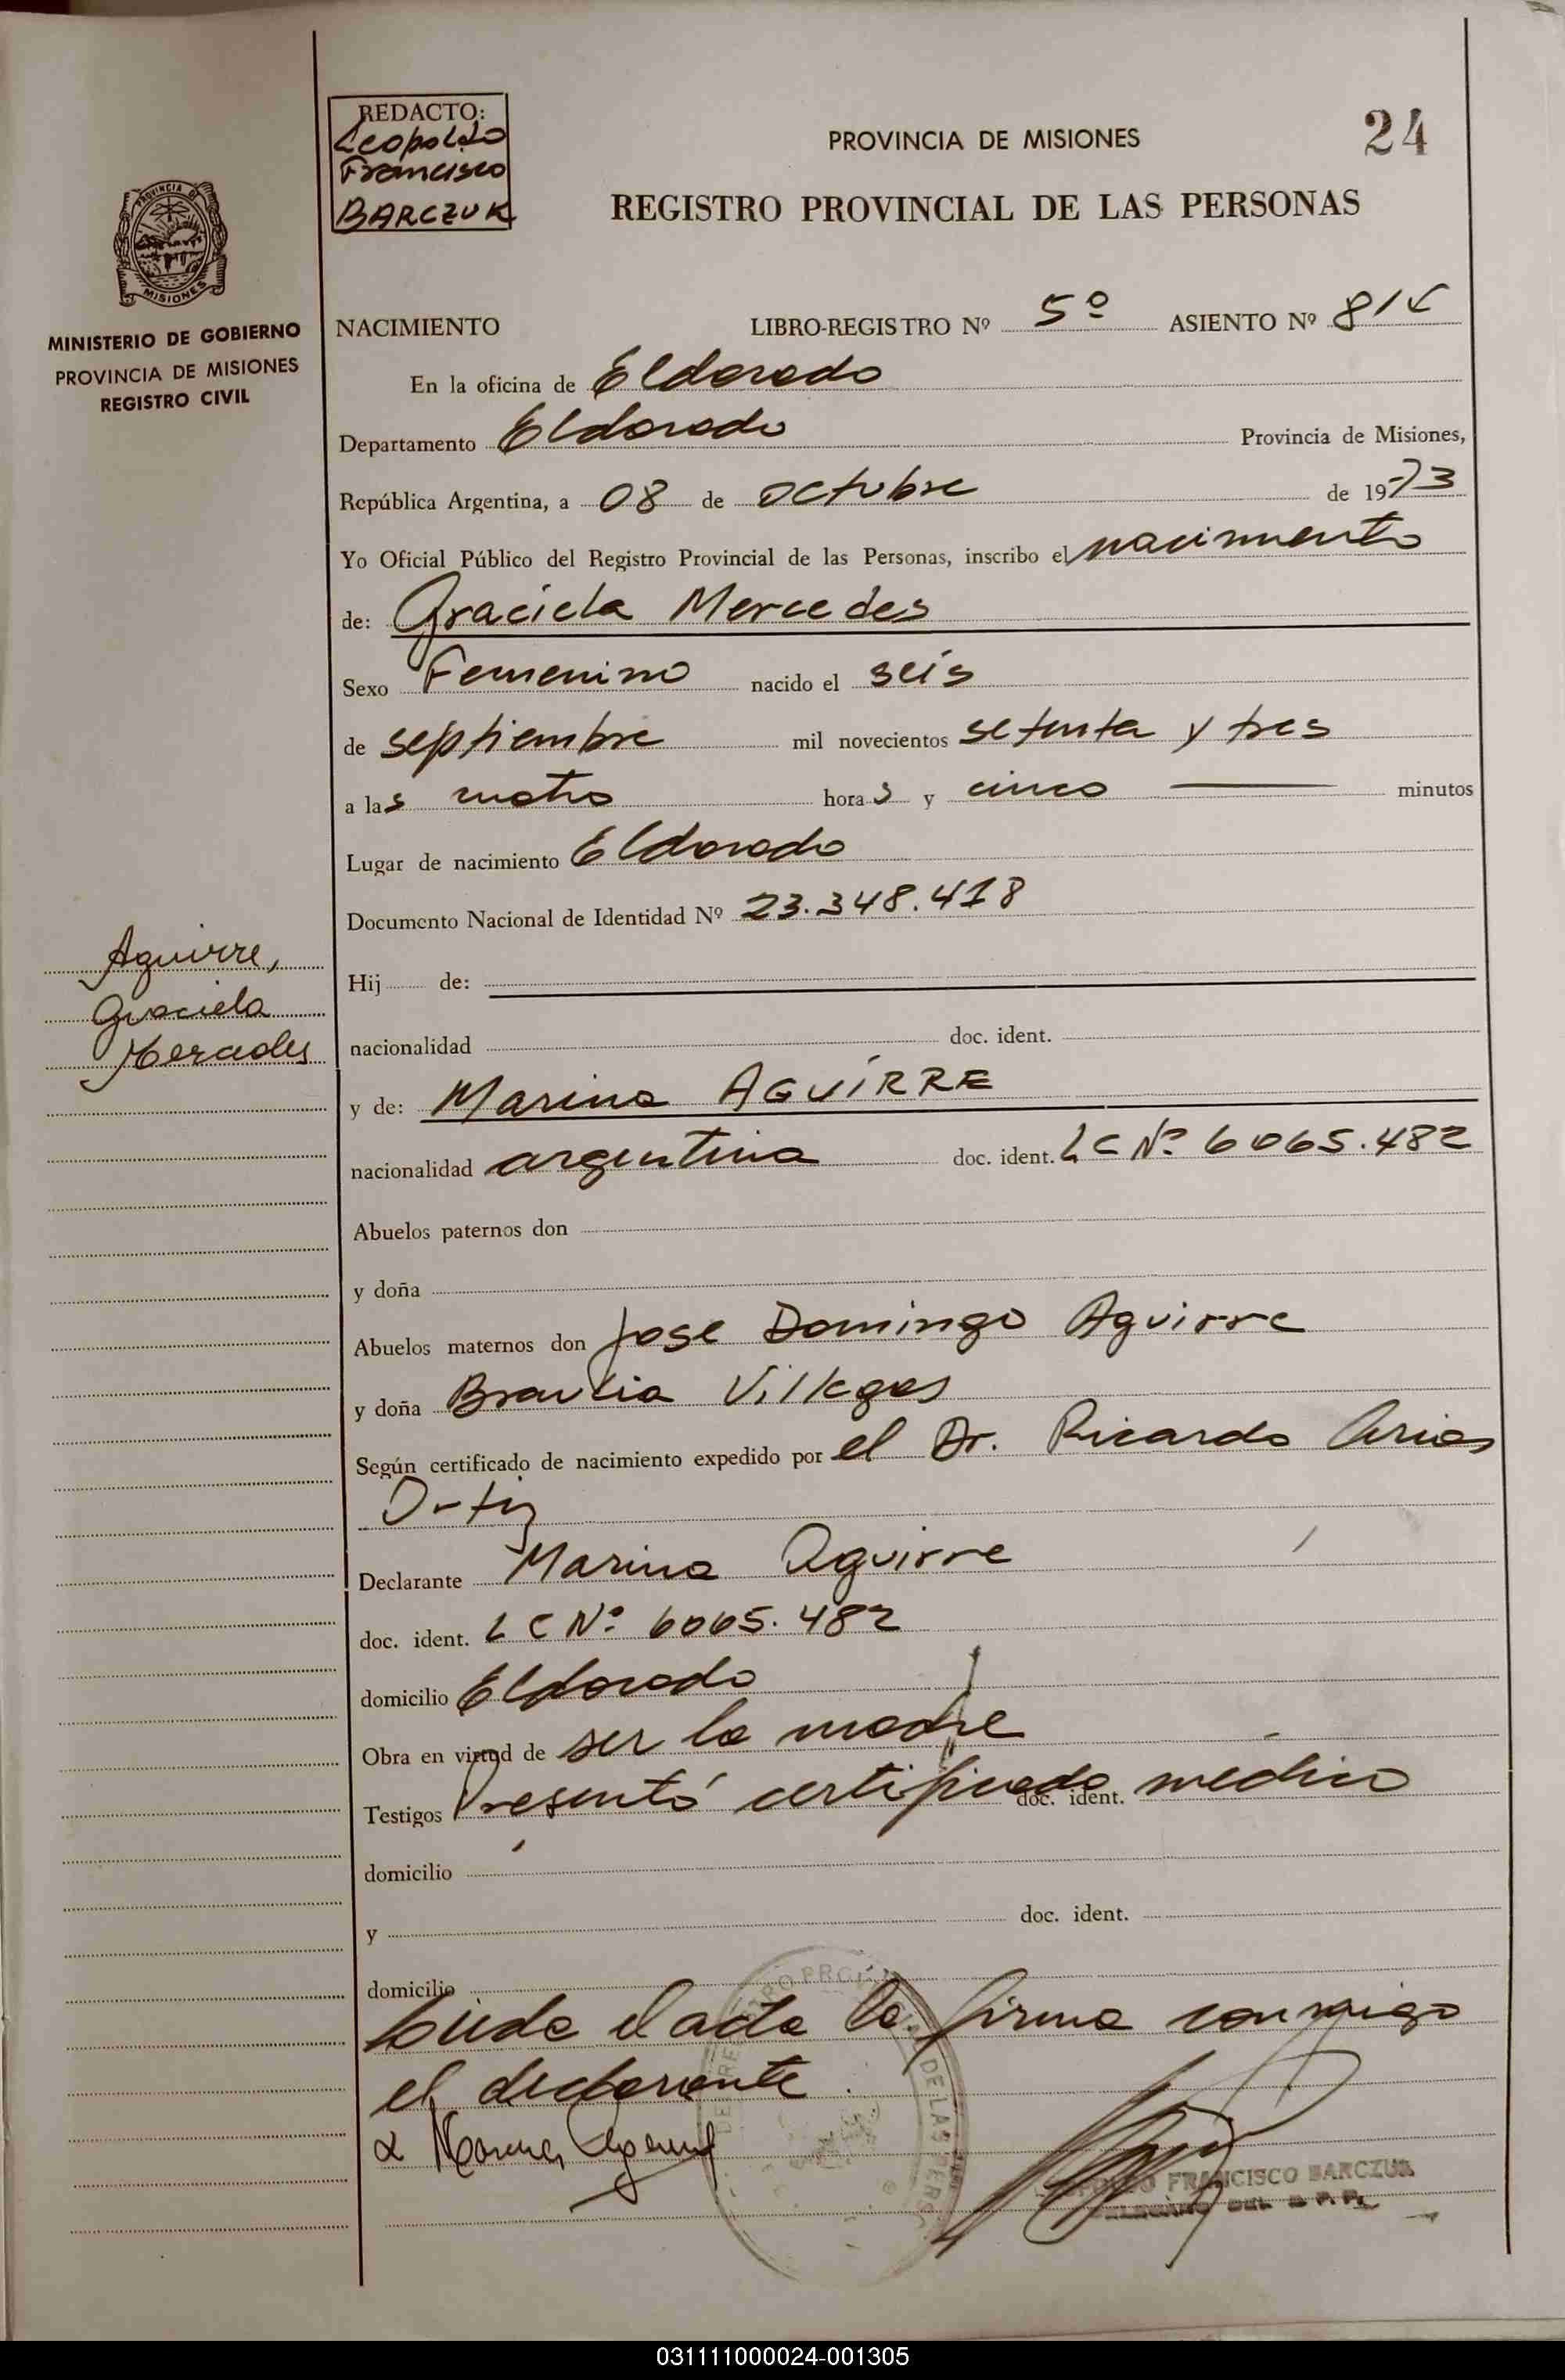 REDACTO:
Leopoldo
Francisco
BARCZUK
PROVINCIA DE MISIONES
24
REGISTRO PROVINCIAL DE LAS PERSONAS
PROVINCIA DE
MISIONES
MINISTERIO DE GOBIERNO
PROVINCIA DE MISIONES
REGISTRO CIVIL
NACIMIENTO LIBRO-REGISTRO Nº 5º ASIENTO Nº
En la oficina de Eldorado
Departamento Eldorado Provincia de Misiones,
República Argentina, a 08 de octubre de 1973
Yo Oficial Público del Registro Provincial de las Personas, inscribo el nacimiento
de: Graciela Mercedes
Sexo Femenino nacido el seis
de septiembre mil novecientos setenta y tres
a las cuatro horas y cinco minutos
Lugar de nacimiento Eldorado
Documento Nacional de Identidad Nº 23.348.418
Aguirre,
Graciela
Mercedes
Hij de:
nacionalidad doc. ident.
y de: Marina AGUIRRE
nacionalidad argentina doc. ident. LC Nº 6065.482
Abuelos paternos don
y doña
Abuelos maternos don Jose Domingo Aguirre
y doña Braulia Villegas
Según certificado de nacimiento expedido por el Dr. Ricardo Arias
Ortiz
Declarante Marina Aguirre
doc. ident. LC Nº 6065.482
domicilio Eldorado
Obra en virtud de ser la madre
Testigos Presentó certificado doc. ident. médico
domicilio
y doc. ident.
domicilio
Leída el acta la firma conmigo
el declarante.
FRANCISCO BARCZUK
031111000024-001305